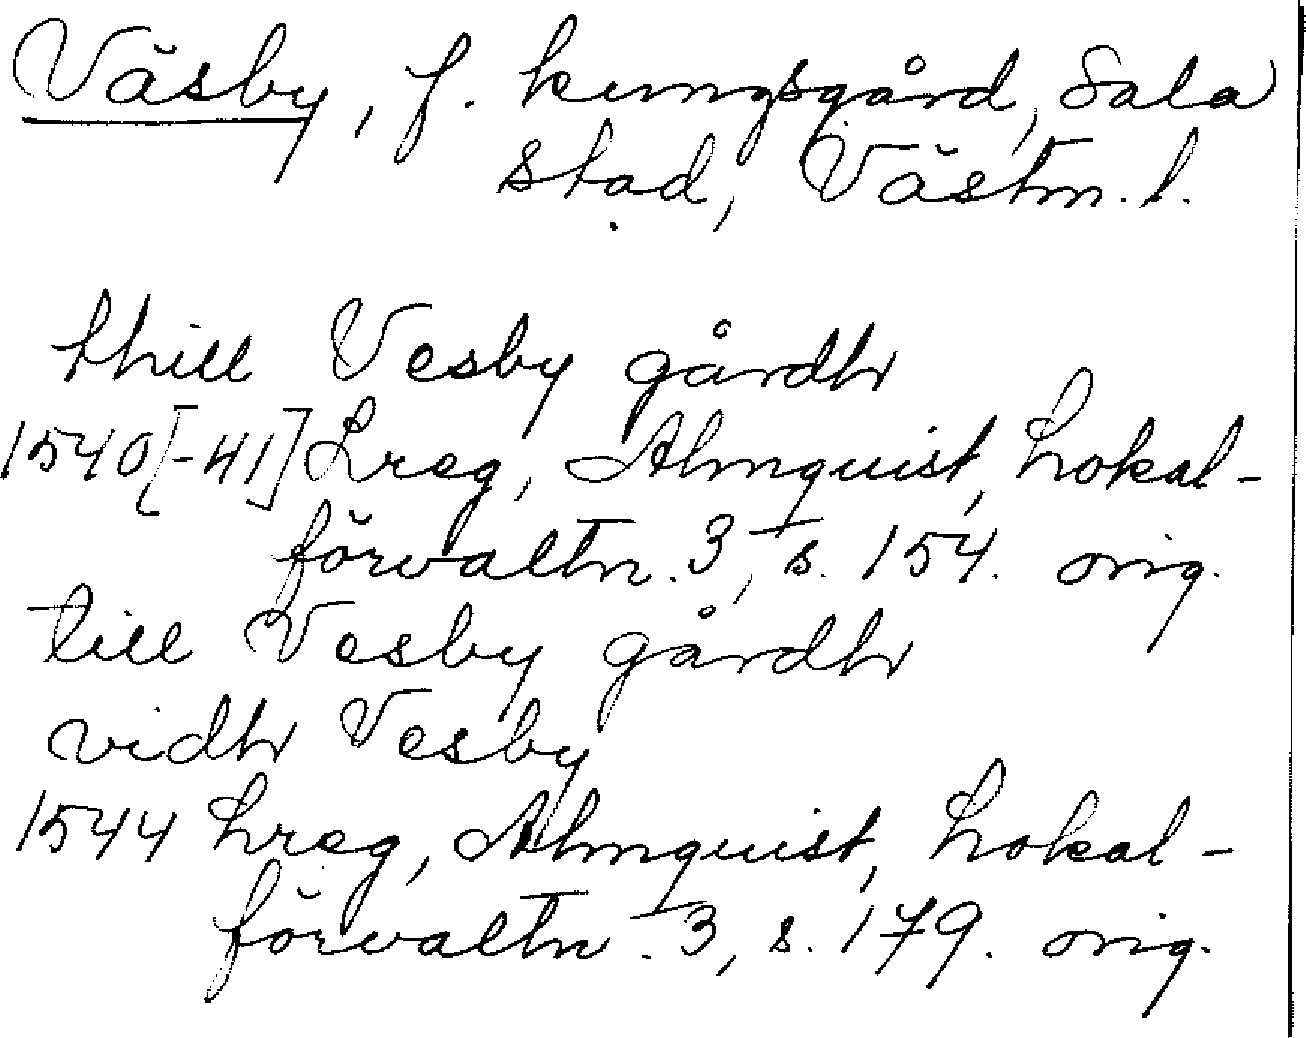 Väsby, f. kungsgård, Sala
stad, Västm. l.
thill Vesby gårdh
1540[-41] Lreg, Almquist, Lokal-
förvaltn. 3, s. 154. orig.
till Vesby gårdh
vidh Vesby
1544 Lreg, Almquist, Lokal-
förvaltn. 3, s. 179. orig.